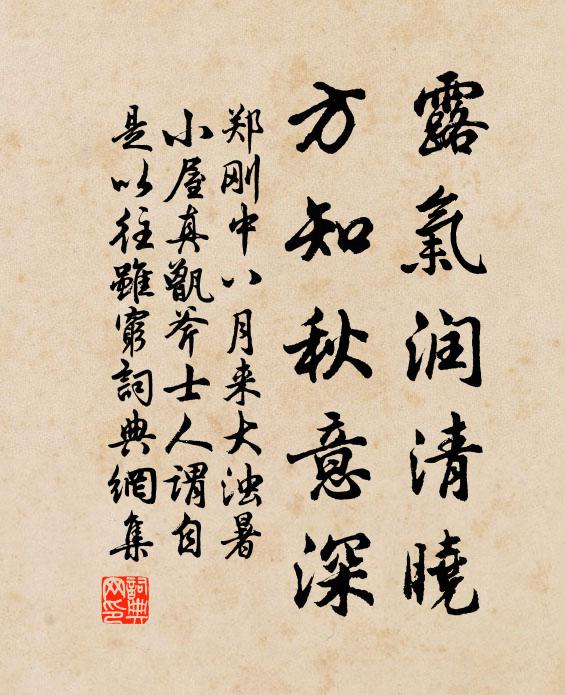 露氣润清曉
方知秋意深
郑刚中八月来大浊暑
小屋真甑斧士人谓自
是以往雖窮詞典網集
詞典网印